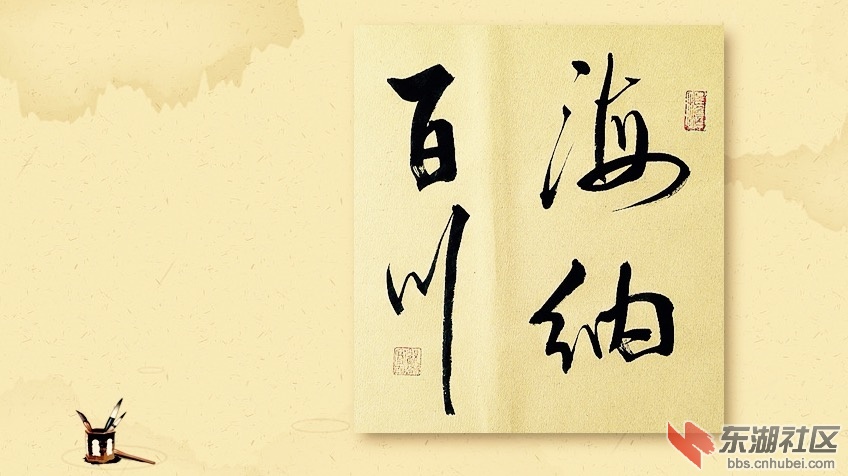 海纳
百川
东湖社区
bbs.cnhubei.com